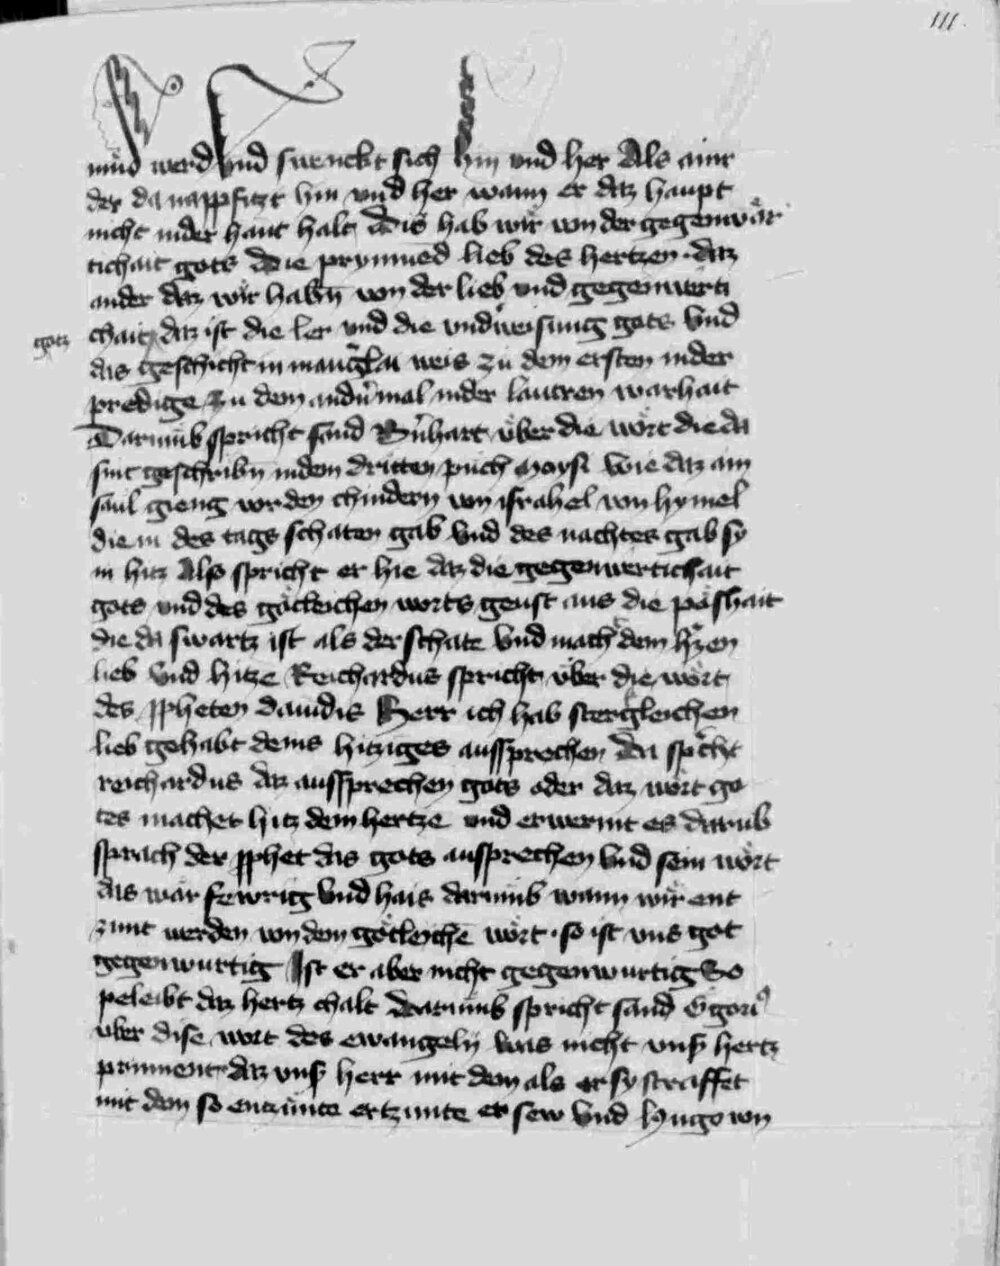 111.
müd werd Vnd swenckt sich hin vnd her Als ainr
der da nappfitzt hin vnd her wann er daz haupt
nicht inder hant halt Dis hab wir von der gegenwür
tichait gots Die prynnued lieb des hertzen · daz
ander daz wir habn̄ von der lieb vnd gegenwerti
gotz
chait daz ist die ler vnd die vndweisung gots Vnd
das geschicht in maing̾lai weis Zu dem ersten inder
predige Zu dem andn̄ mal inder lautren warhait
Darumb spricht sand Bn̄hart über die wört die da
sint geschribn̄ indem dritten puch Moysi Wie daz ain
saul gieng vor den chindern von israhel von hymel
die in des tags schaten gab Vnd des nachtes gab sy
in hitz Also spricht er hie daz die gegenwertichait
gots vnd des götleichen worts geust aus die poshait
die da swartz ist als der schate Vnd macht dem h̾tzen
lieb Vnd hitze Reichardus spricht über die wört
des ppheten dauidis Herr ich hab stergkleichen
lieb gehabt deins hitziges aussprechen Da sp̾cht
reichardus daz aussprechen gots oder daz wört go
tes machet hitz dem hertze vnd erwermt es darub
sprach der pphet das gots aussprechen Vnd sein wört
das wär fewrig Vnd hais darumb wann wir ent
zunt werden von dem götleichē wört · so ist vns got
gegenwurtig Ist er aber nicht gegenwurtig So
peleibt daz hertz chalt Darumb spricht sand G̾gori⁹
über dise wort des ewangelij Was nicht vns̾ hertz
prinnent daz vns̾ herr mit dem als er sy straffet
mit dem so entzünte ertzunte er sew Vnd hugo von